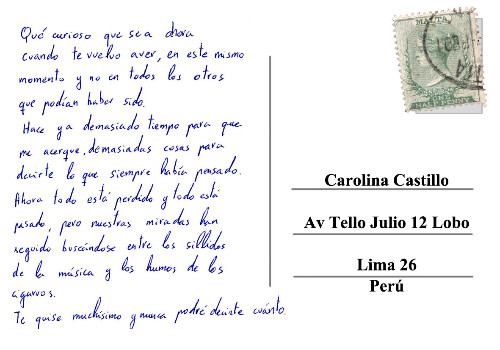 Qué curioso que sea ahora
cuando te vuelvo aver, en este mismo
momento y no en todos los otros
que podían haber sido.
Hace ya demasiado tiempo para que
me acerque, demasiadas cosas para
decirte lo que siempre había pensado.
Ahora todo está perdido y todo está
pasado, pero nuestras miradas han
seguido buscándose entre los sillidos
de la música y los humos de los
cigarros.
Te quise muchísimo y nunca podré decirte cuánto.
MALTA
HALF PENNY
Carolina Castillo
Av Tello Julio 12 Lobo
Lima 26
Perú